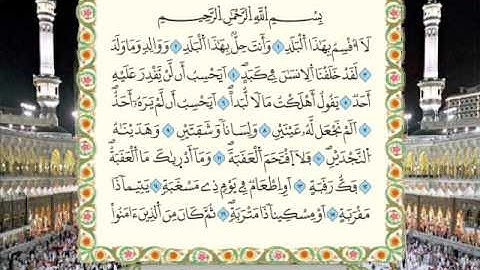 بِسْمِ اللَّهِ الرَّحْمَٰنِ الرَّحِيمِ
لَا أُقْسِمُ بِهَٰذَا الْبَلَدِ ١ وَأَنتَ حِلٌّ بِهَٰذَا الْبَلَدِ ٢ وَوَالِدٍ وَمَا وَلَدَ
٣ لَقَدْ خَلَقْنَا الْإِنسَٰنَ فِي كَبَدٍ ٤ أَيَحْسِبُ أَن لَّن يَقْدِرَ عَلَيْهِ
أَحَدٌ ٥ يَقُولُ أَهْلَكْتُ مَالًا لُّبَدًا ٦ أَيَحْسِبُ أَن لَّمْ يَرَهُۥ أَحَدٌ
٧ أَلَمْ نَجْعَل لَّهُۥ عَيْنَيْنِ ٨ وَلِسَانًا وَشَفَتَيْنِ ٩ وَهَدَيْنَٰهُ
النَّجْدَيْنِ ١٠ فَلَا اقْتَحَمَ الْعَقَبَةَ ١١ وَمَا أَدْرَىٰكَ مَا الْعَقَبَةُ
١٢ فَكُّ رَقَبَةٍ ١٣ أَوْ إِطْعَٰمٌ فِي يَوْمٍ ذِي مَسْغَبَةٍ ١٤ يَتِيمًا ذَا
مَقْرَبَةٍ ١٥ أَوْ مِسْكِينًا ذَا مَتْرَبَةٍ ١٦ ثُمَّ كَانَ مِنَ الَّذِينَ ءَامَنُوا